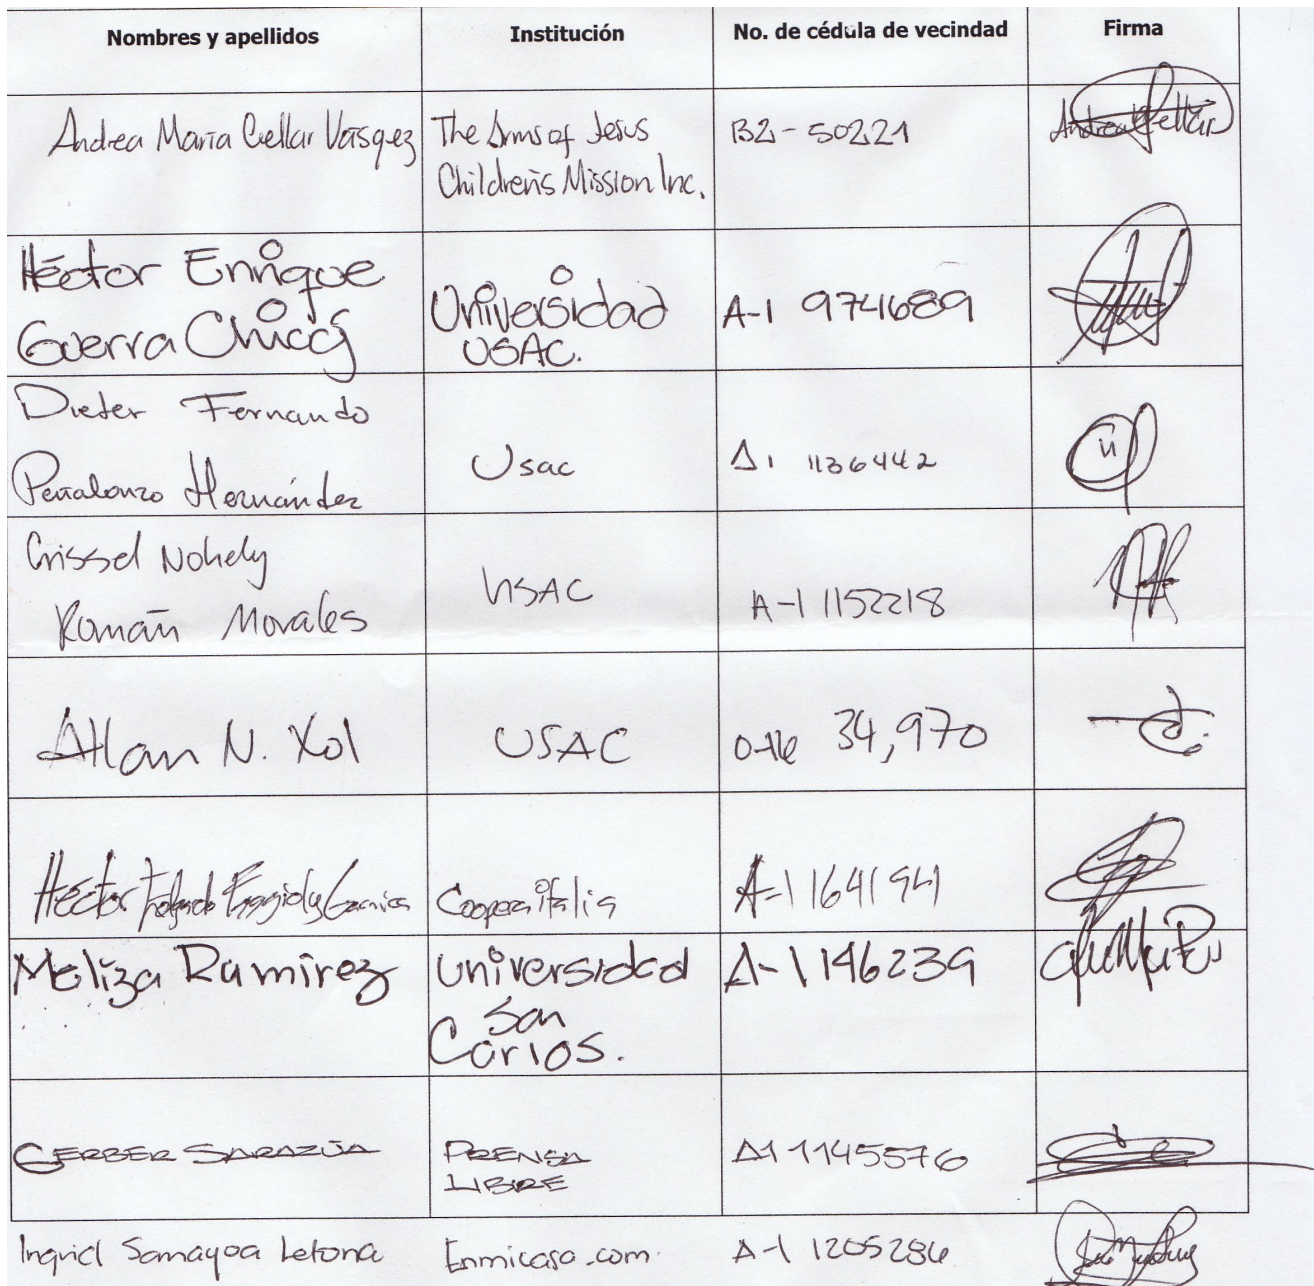 Nombres y apellidos Institución No. de cédula de vecindad Firma
Andrea María Cuellar Vásquez The Arms of Jesus B2-50221 Andrea Cuellar
Children's Mission Inc.
Héctor Enrique
Guerra Universidad A-1 974689
USAC.
Dieter Fernando
Peñalonzo Hernández Usac A1 1136442
Crissel Nohely
Román Morales USAC A-1 1152218
Allan N. Xol USAC 0-16 34,970
Héctor Cooperaitalia A-1 1641941
Meliza Ramírez Universidad A-1 1146239
San
Carlos.
GERBER SARAZÚA PRENSA A1 1145576
LIBRE
Ingrid Samayoa Letona Enmicasa.com A-1 1205286